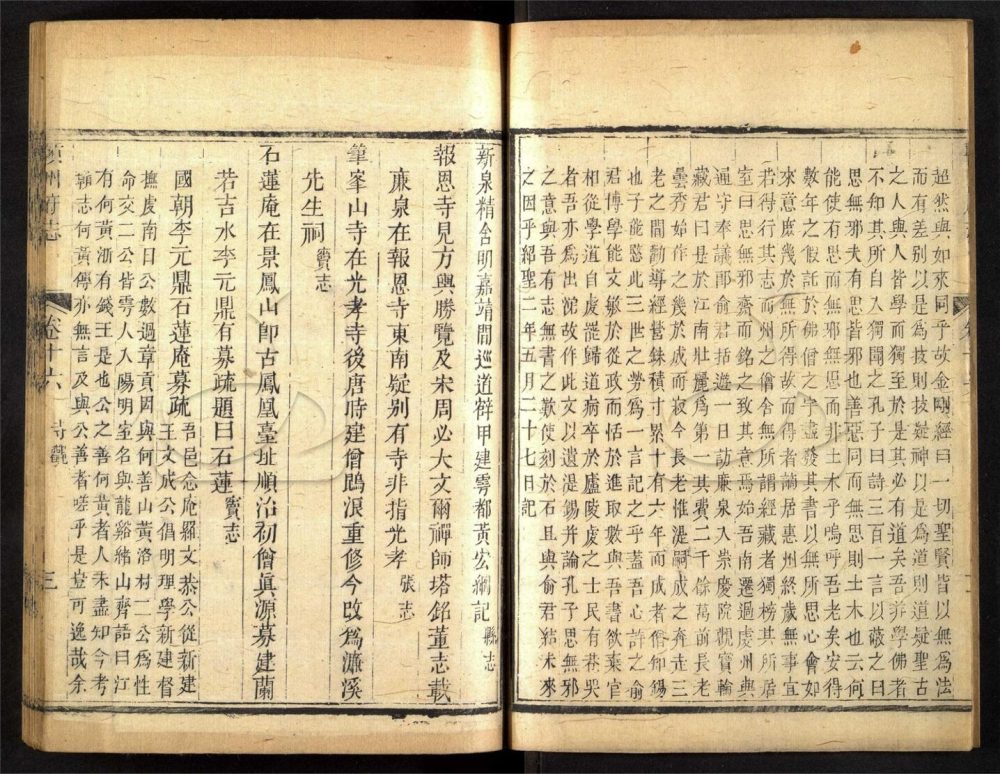 超然與如來同乎故金剛經曰一切聖賢皆以無爲法
而有差别以是爲技則技疑神以是爲道則道疑聖古
之人與人皆學而獨至於是其必有道矣吾非學佛者
不知其所自入獨聞之孔子曰詩三百一言以蔽之曰
思無邪夫有思皆邪也善惡同而無思則土木也云何
能使有思而無邪無思而非土木乎嗚呼吾老矣安得
數年之假託於佛僧之宇盡發其書以無所思心會如
來意庶幾於無所得故而得者謫居惠州終歲無事宜
若得行其志而州之僧舍無所謂經藏者獨榜其所居
室曰思無邪齋而銘之致其意焉始吾南遷過虔州與
通守奉議郎俞君括遊一日訪廉泉入崇慶院觀寶輪
藏君曰是於江南壯麗爲第一其費二千餘萬前長老
曇秀始作之幾於成而寂今長老惟湜嗣成之奔走三
老之間勸導經營銖積寸累十有六年而成者僧知錫
也子能愍此三世之勞爲一言記之乎蓋吾心許之俞
君博學能文敏於從政而恬於進取數與吾書欲棄官
相從學道自虔罷歸道病卒於廬陵虔之士民有巷哭
者吾亦爲出涕故作此文以遺湜錫并論孔子思無邪
之意與吾有志無書之歎使刻於石且與俞君結未來
之因乎紹聖二年五月二十七日記
新泉精舍明嘉靖間巡道薛甲建雩都黃宏綱記 縣志
報恩寺見方輿勝覽及宋周必大文爾禪師塔銘董志載
廉泉在報恩寺東南疑别有寺非指光孝 張志
筆峯山寺在光孝寺後唐時建僧鴟浪重修今改爲濂溪
先生祠 竇志
石蓮庵在景鳳山卽古鳳凰臺址順治初僧眞源募建蘭
若吉水李元鼎有募疏題曰石蓮 竇志
國朝李元鼎石蓮庵募疏 吾邑念庵羅文恭公從新建
王文成公倡明理學新建督
撫虔南日公數過章貢因與何善山黃洛村二公爲性
命交二公皆雩人入陽明室名與龍谿緒山齊語曰江
有何黃浙有錢王是也公之善何黃者人未盡知今考
郡志何黃傳亦無言及與公善者嗟乎是豈可逸哉余
州府志
卷十六
寺觀
三